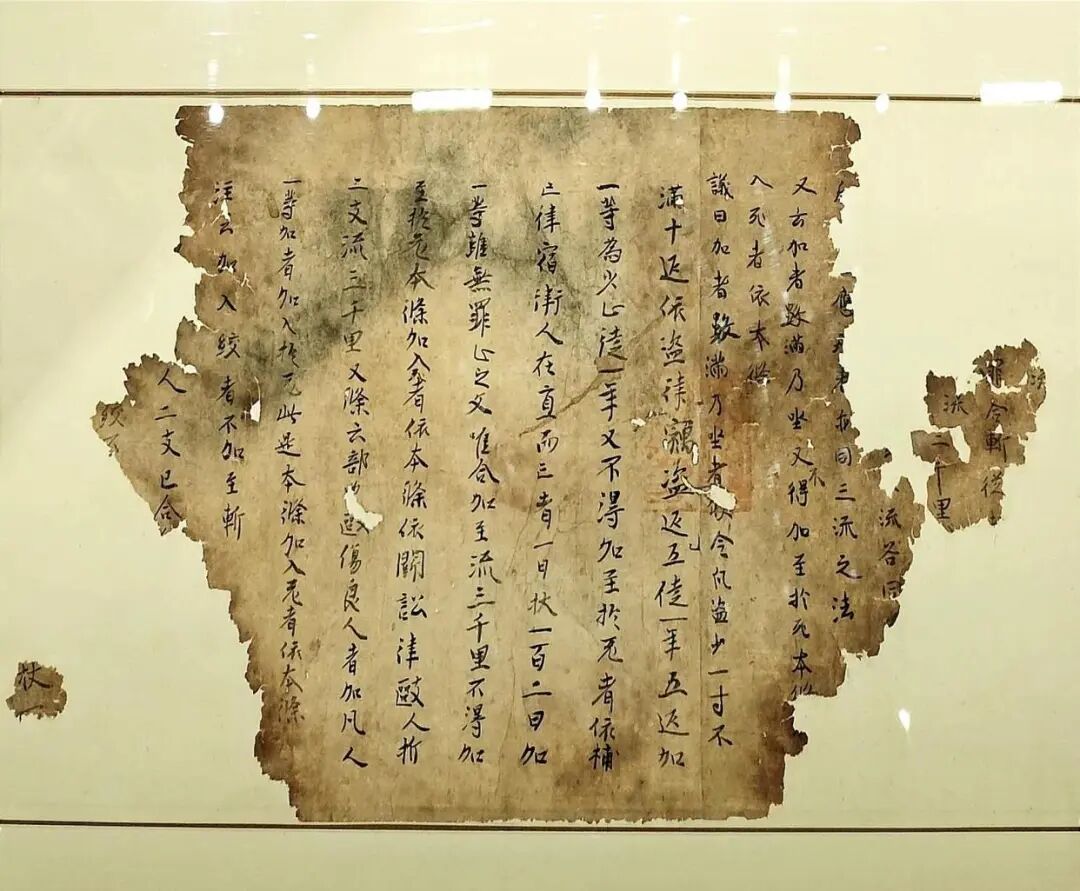 流
罪合斬從
流
二千里
流各同
同三流之法
又云加者數滿乃坐又不得加至於死本條
入死者依本條
議曰加者數滿乃坐者假令凡盜少一寸不
滿十疋依盜律竊盜疋五徒一年五疋加
一等為少止徒一年又不得加至於死者依捕
亡律宿衛人在直而亡者一日杖一百二日加
一等雖無罪止之文唯合加至流三千里不得加
至於死本條加入者依本條依鬭訟律毆人折
二支流三千里又條云部毆傷良人者加凡人
一等加者加入於死此是本條加入死者依本條
注云加入絞者不加至斬
人二支已合
絞
杖一